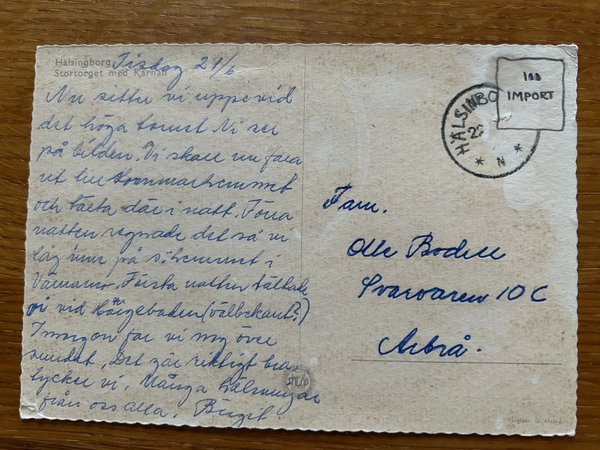 Hälsingborg. Tisdag 21/6
Stortorget med Kärnan
Nu sitter vi uppe vid
det höga tornet Ni ser
på bilden. Vi skall nu fara
ut till
och tälta där i natt. Förra
natten regnade det så vi
låg inne på simsemmet i
Värnamo. Första natten tältade
vi vid (välbekant?)
I morgon far vi nog över
sundet. Det går riktigt bra
tycker vi. Många hälsningar
från oss alla. Birgit.
HÄLSINGBO
* N *
100
IMPORT
Fam.
Olle Bodell
Svarvaren 10 C
Arbrå.